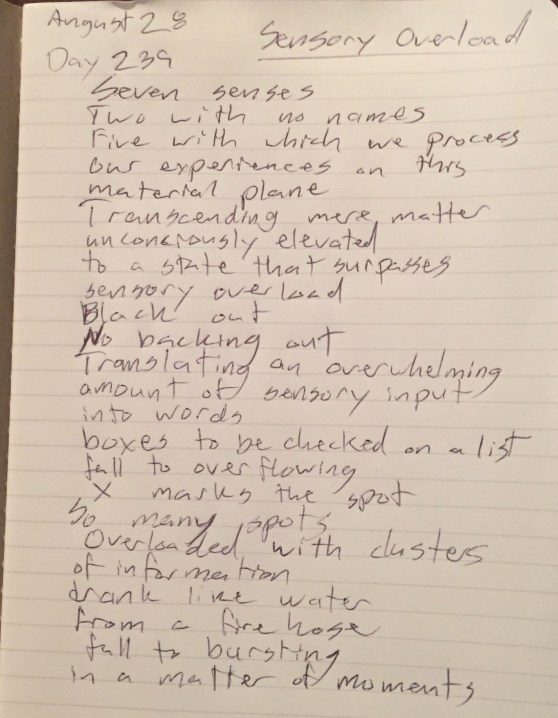 August 28
Sensory Overload
Day 239
Seven senses
Two with no names
Five with which we process
our experiences on this
material plane
Transcending mere matter
unconciously elevated
to a state that surpasses
sensory overload
Black out
No backing out
Translating an overwhelming
amount of sensory input
into words
boxes to be checked on a list
full to overflowing
X marks the spot
So many spots
Overloaded with clusters
of information
drank like water
from a fire hose
full to bursting
in a matter of moments